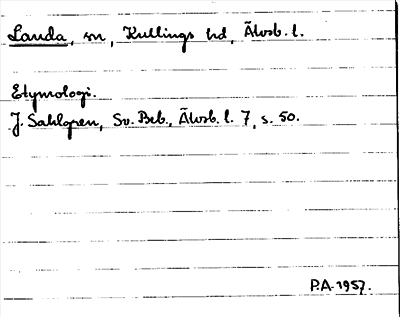 Landa, sn, Kullings hd, Älvsb. l.
Etymologi.
J. Sahlgren, Sv. Beb., Älvsb. l. 7, s. 50.
P.A. 1957.